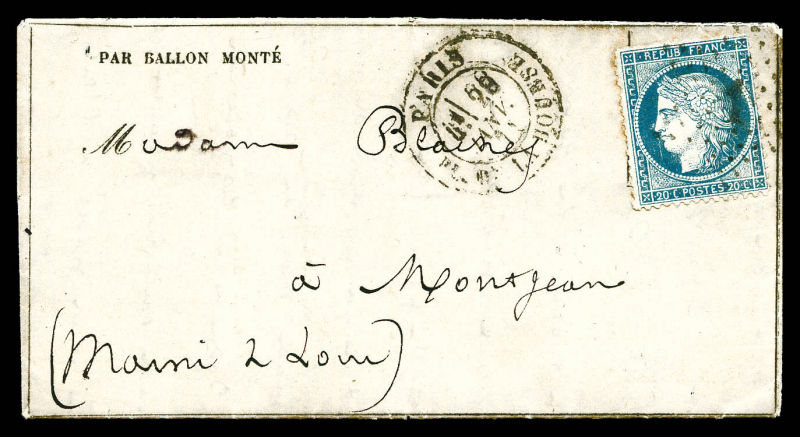 PAR BALLON MONTÉ
PARIS
PL. DE LA BOURSE
REPUB. FRANC.
20 C. POSTES 20 C.
Madame Blainey
à Montjean
(Maine & Loire)